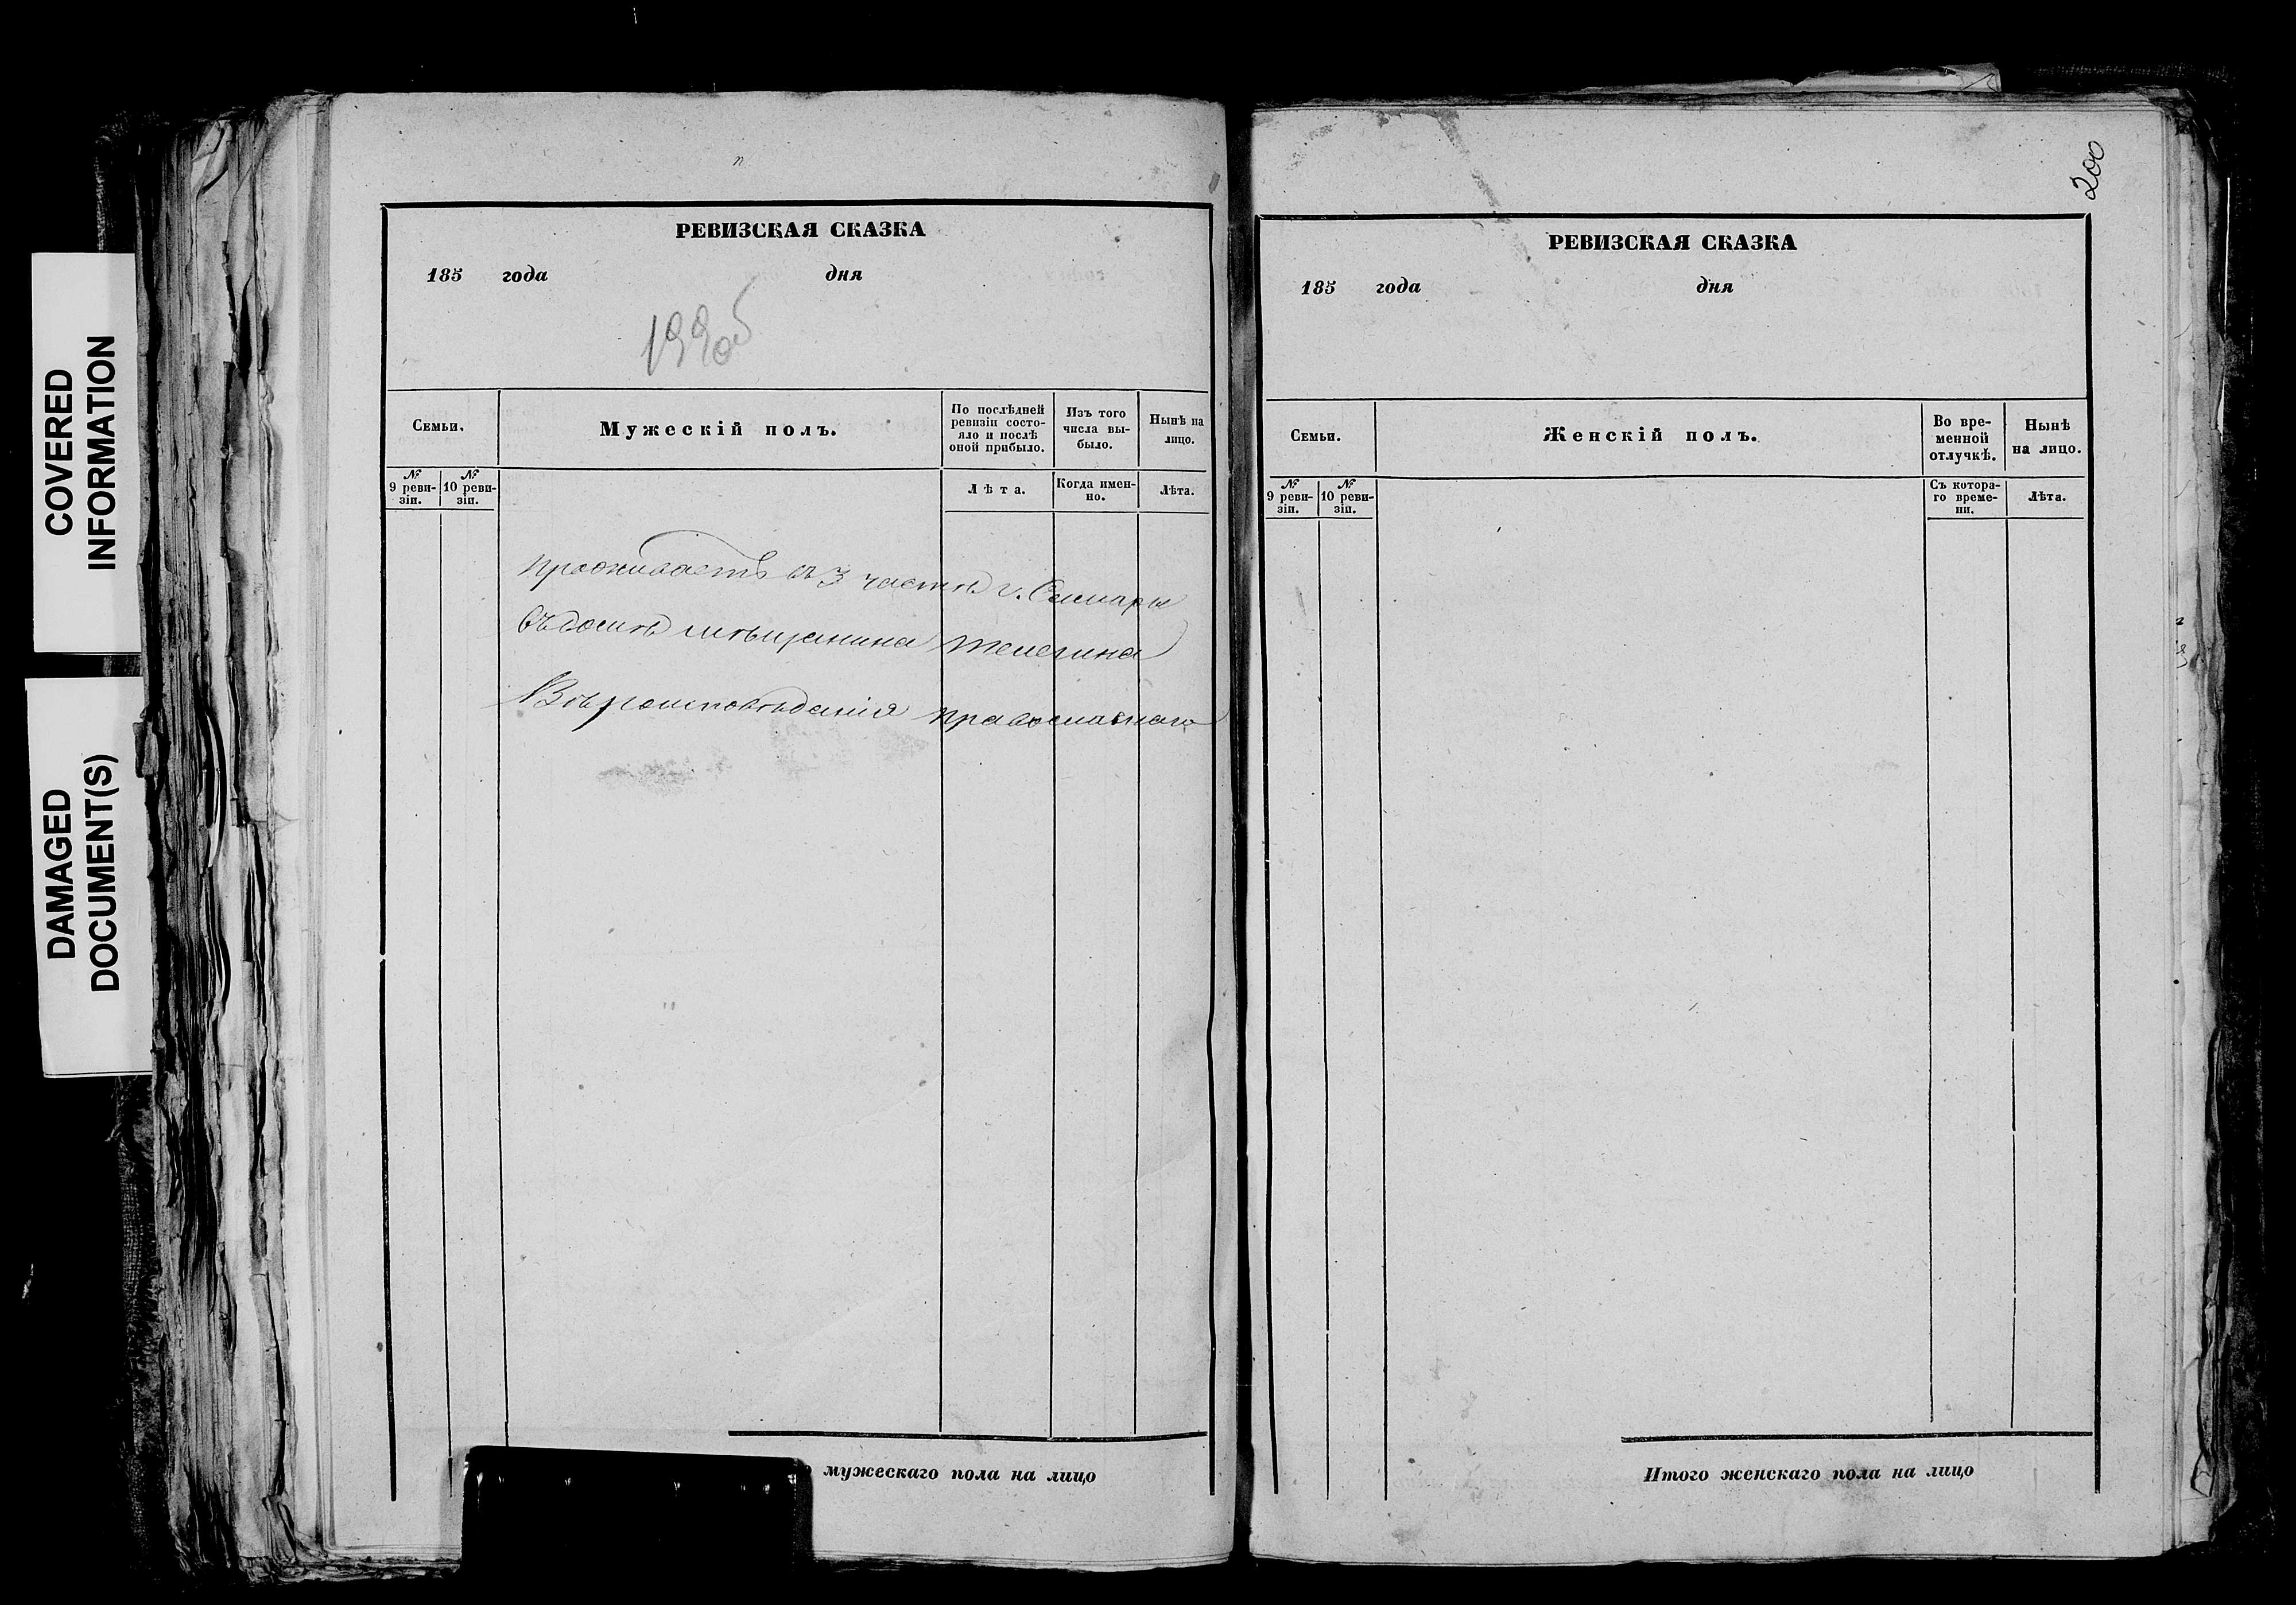 COVERED
INFORMATION
DAMAGED
DOCUMENT(S)
РЕВИЗСКАЯ СКАЗКА
185 года дня
199об
Семьи.
Мужескій полъ.
По послѣдней
ревизіи состо-
яло и послѣ
оной прибыло.
Изъ того
числа вы-
было.
Нынѣ на
лицо.
№
9 реви-
зіи.
№
10 реви-
зіи.
Лѣта.
Когда имен-
но.
Лѣта.
Проживаетъ въ 3 части г. Самары
Въ домѣ мѣщанина Телегина
Вѣроисповѣданія православнаго
мужескаго пола на лицо
200
РЕВИЗСКАЯ СКАЗКА
185 года дня
Семьи.
Женскій полъ.
Во вре-
менной
отлучкѣ.
Нынѣ
на лицо.
№
9 реви-
зіи.
№
10 реви-
зіи.
Съ котора-
го време-
ни.
Лѣта.
Итого женскаго пола на лицо